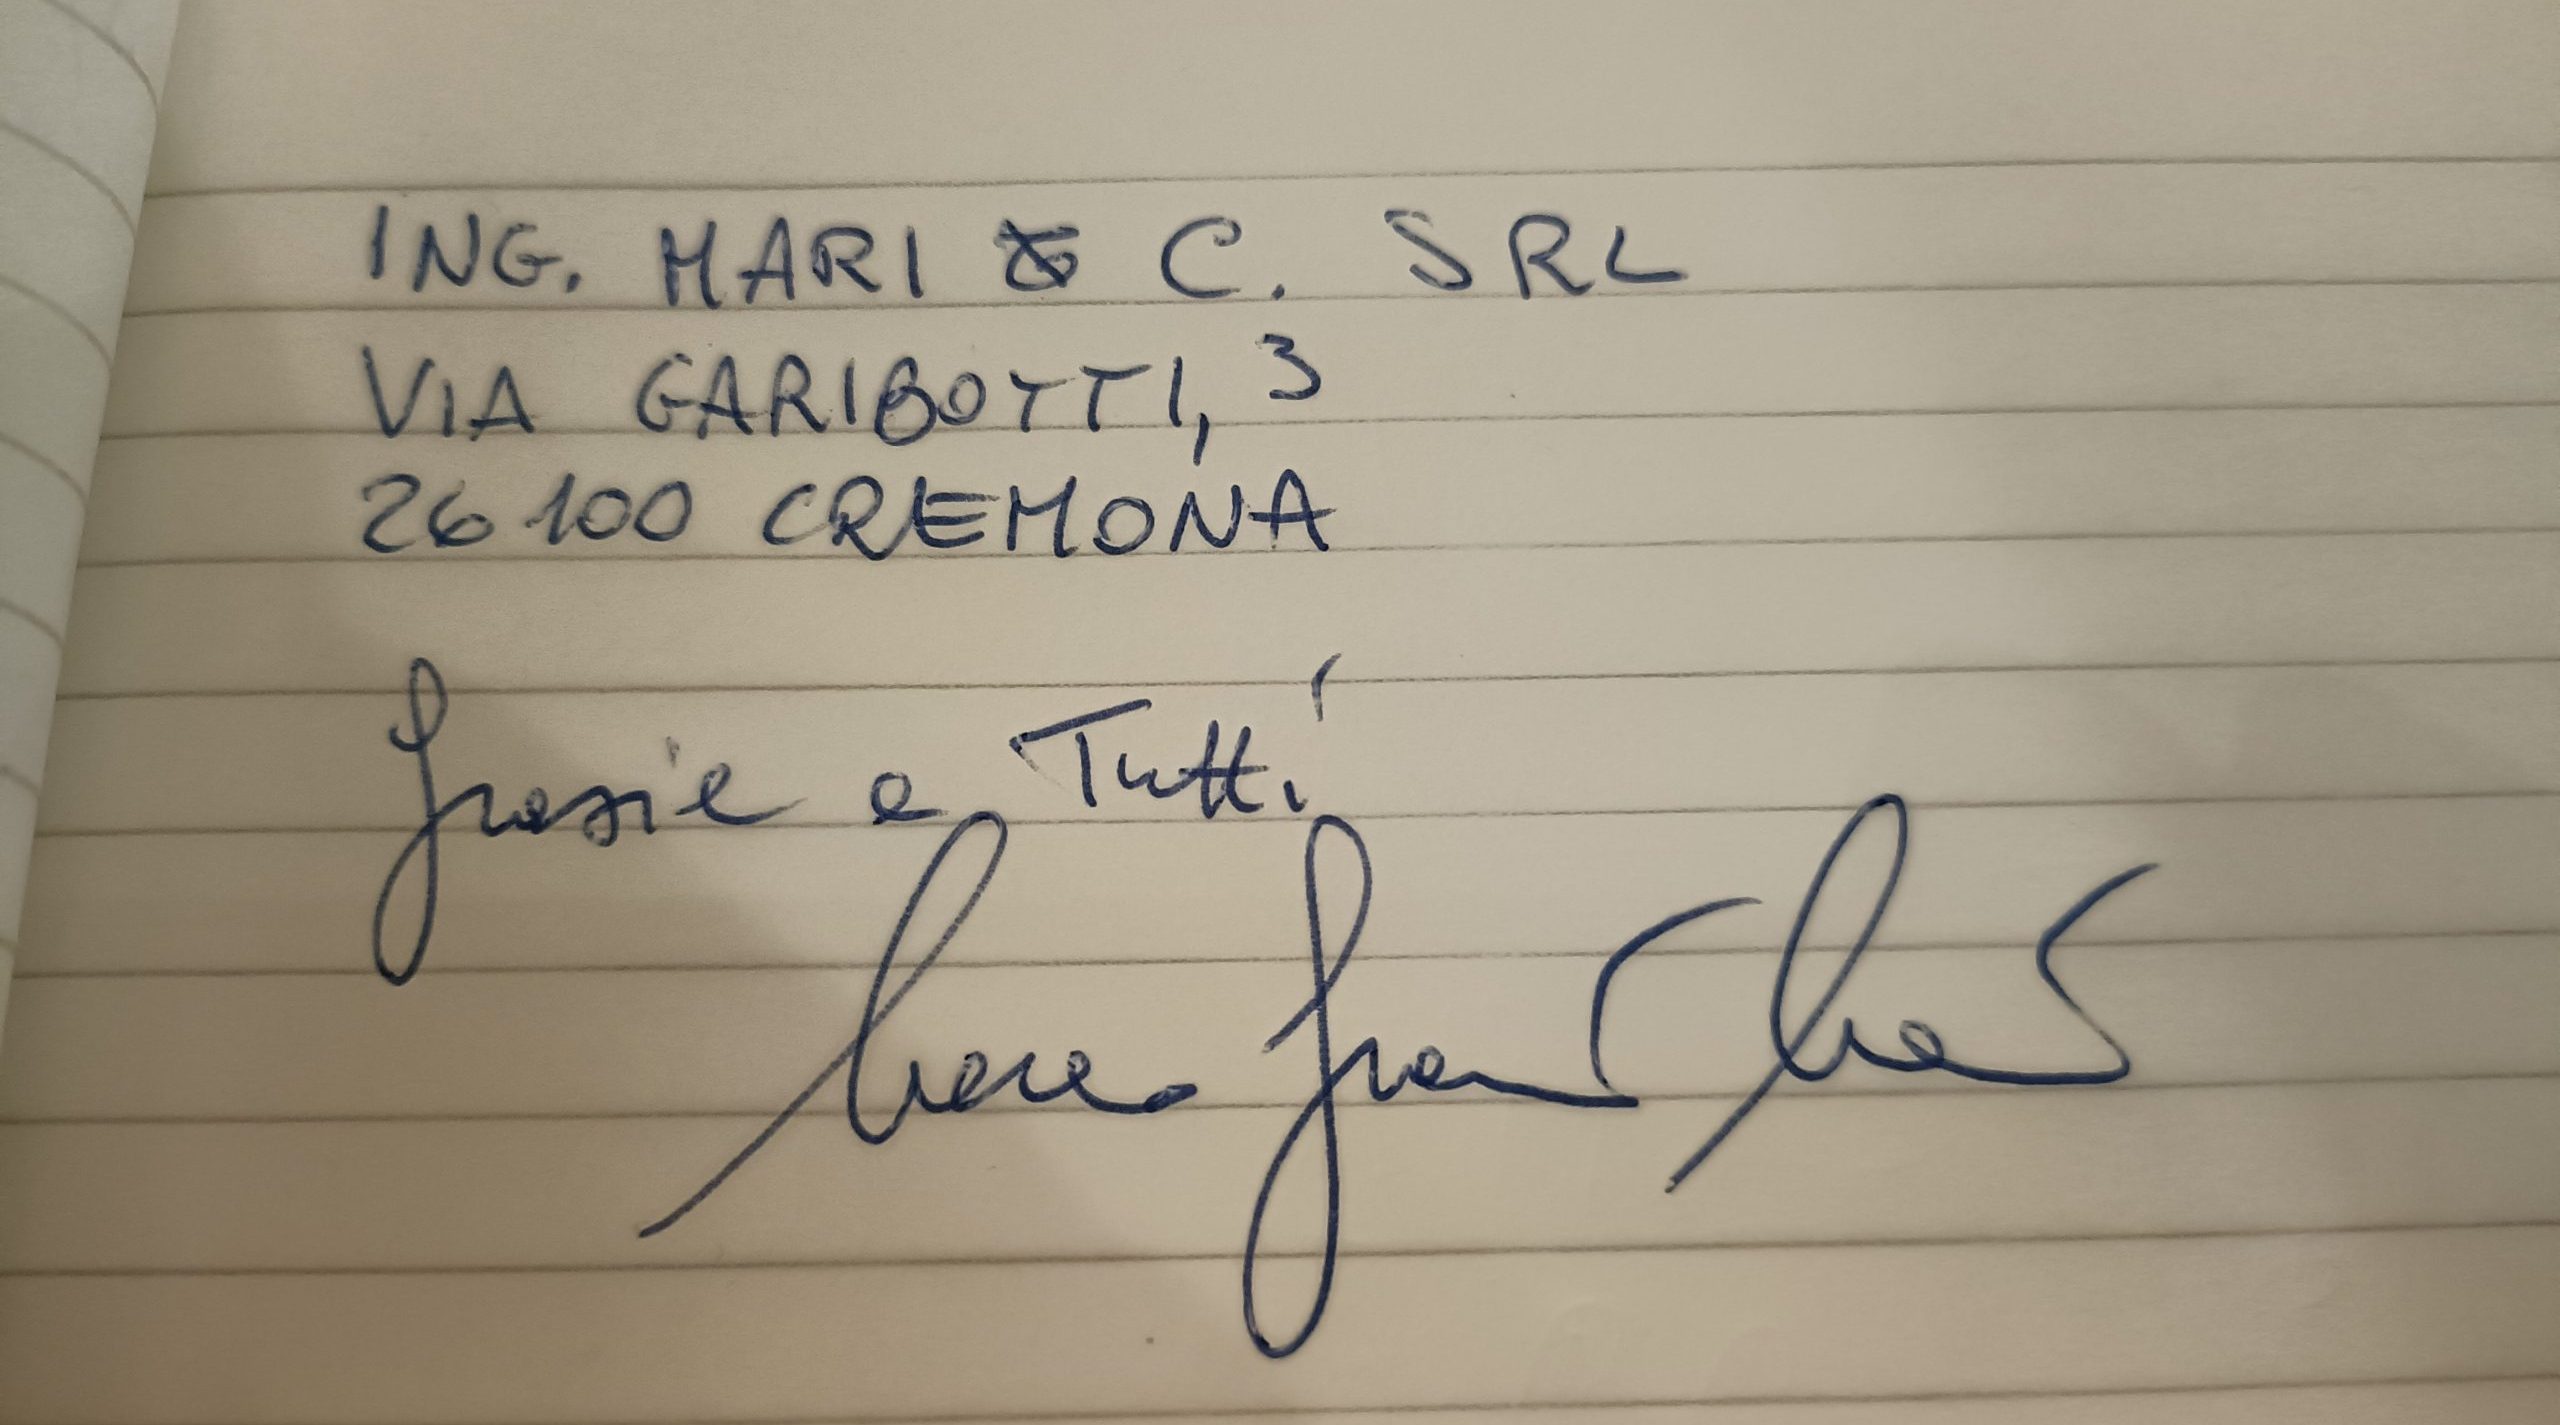 ING. MARI & C. SRL
VIA GARIBOTTI, 3
26100 CREMONA
Grazie a Tutti